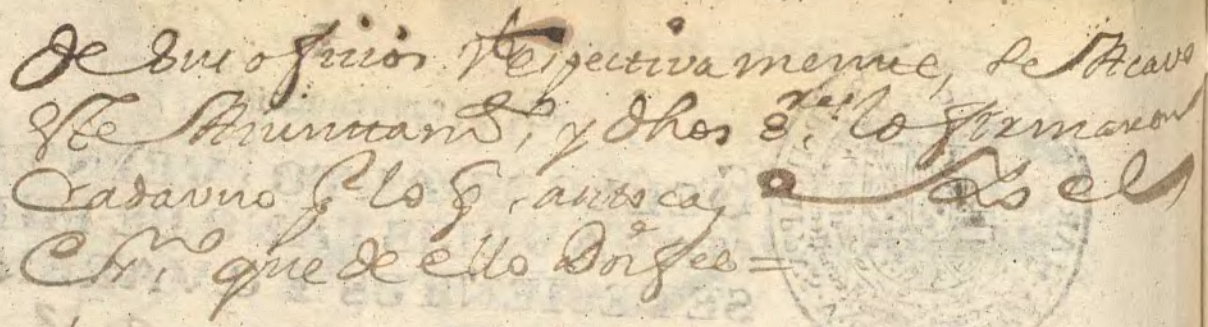 de sus ofiuios Respectivamente, se Acavo
este Aiunttamto, y dhos Sres. lo firmaron
Cadauno por lo q. autoca, el
Esno que de ello Doi fee =